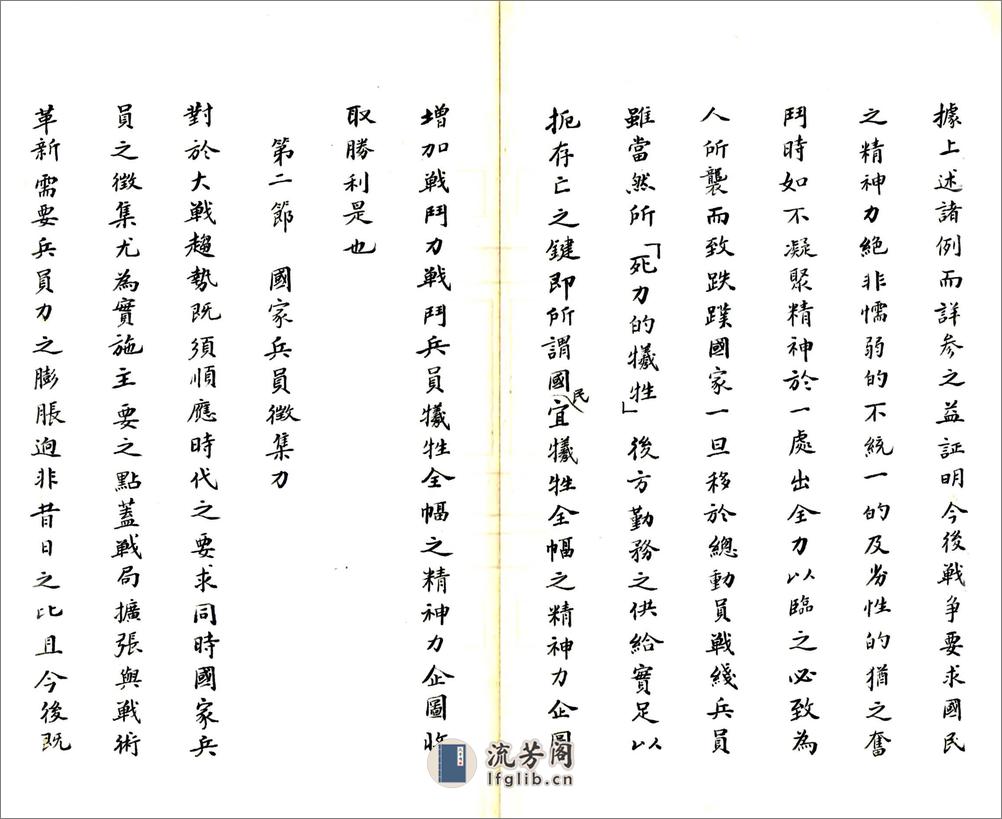 據上述諸例而詳参之益証明今後戦争要求國民
之精神力絕非懦弱的不統一的及劣性的猶之奮
鬥時如不凝聚精神於一處出全力以臨之必致為
人所襲而致跌蹼國家一旦移於總動員戦綫兵員
雖當然所「死力的犧牲」後方勤務之供給實足以
扼存亡之鍵即所謂國民宜犧牲全幅之精神力企圖
增加戦鬥力戦鬥兵員犧牲全幅之精神力企圖收
取勝利是也
第二節 國家兵員徵集力
對於大戦趨勢既須順應時代之要求同時國家兵
員之徵集尤為實施主要之點蓋戦局擴張與戦術
革新需要兵員力之膨脹逈非昔日之比且今後既
流芳阁
lfglib.cn